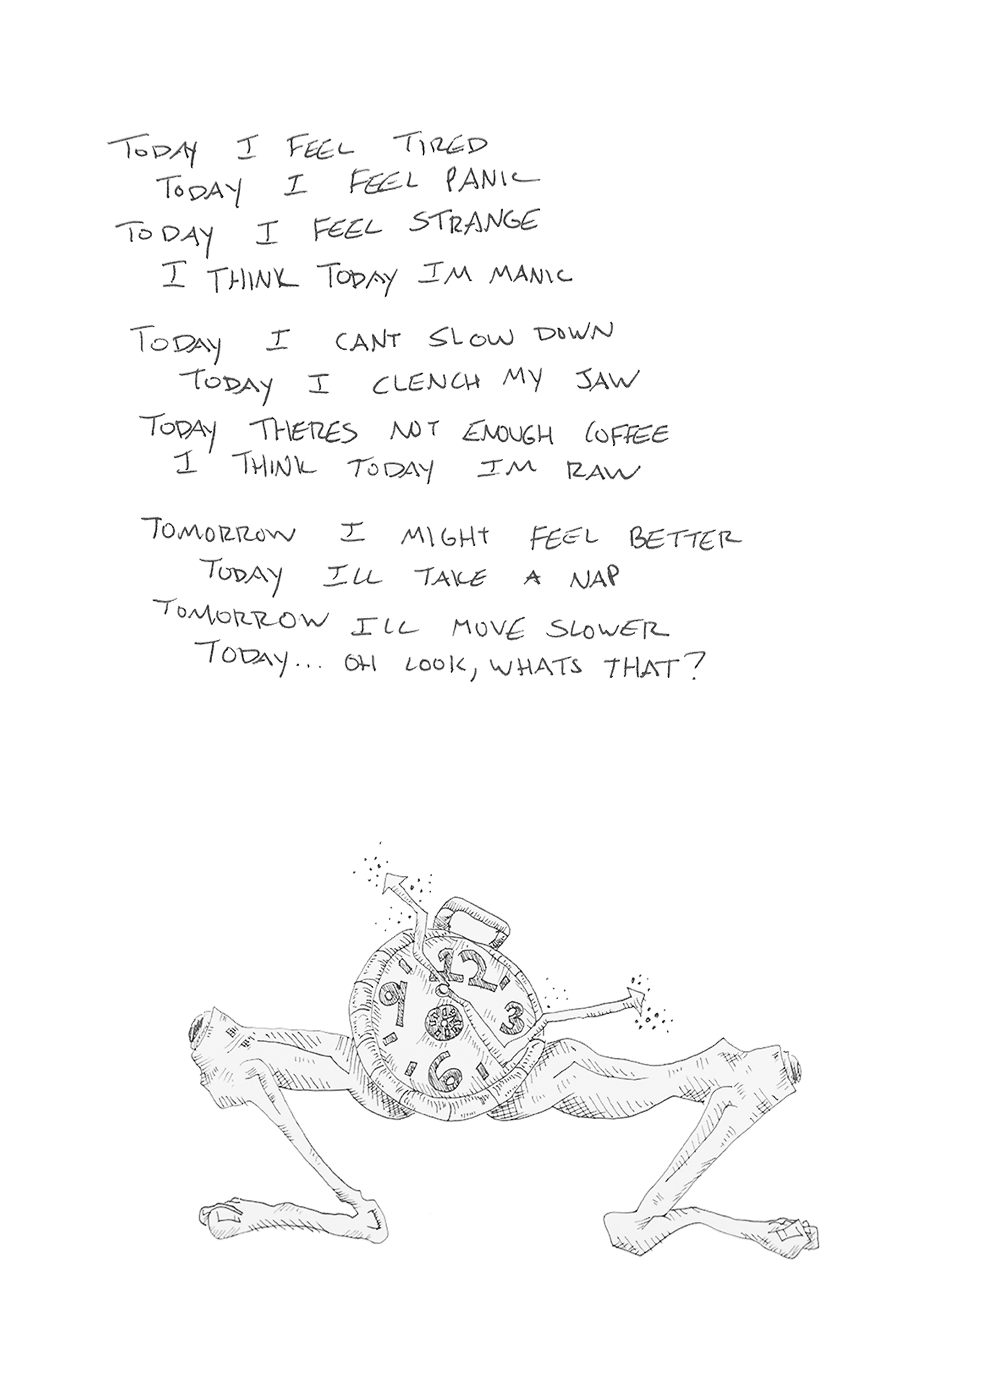 TODAY I FEEL TIRED
TODAY I FEEL PANIC
TODAY I FEEL STRANGE
I THINK TODAY IM MANIC
TODAY I CANT SLOW DOWN
TODAY I CLENCH MY JAW
TODAY THERES NOT ENOUGH COFFEE
I THINK TODAY IM RAW
TOMORROW I MIGHT FEEL BETTER
TODAY ILL TAKE A NAP
TOMORROW ILL MOVE SLOWER
TODAY... OH LOOK, WHATS THAT?
12
9 3
6